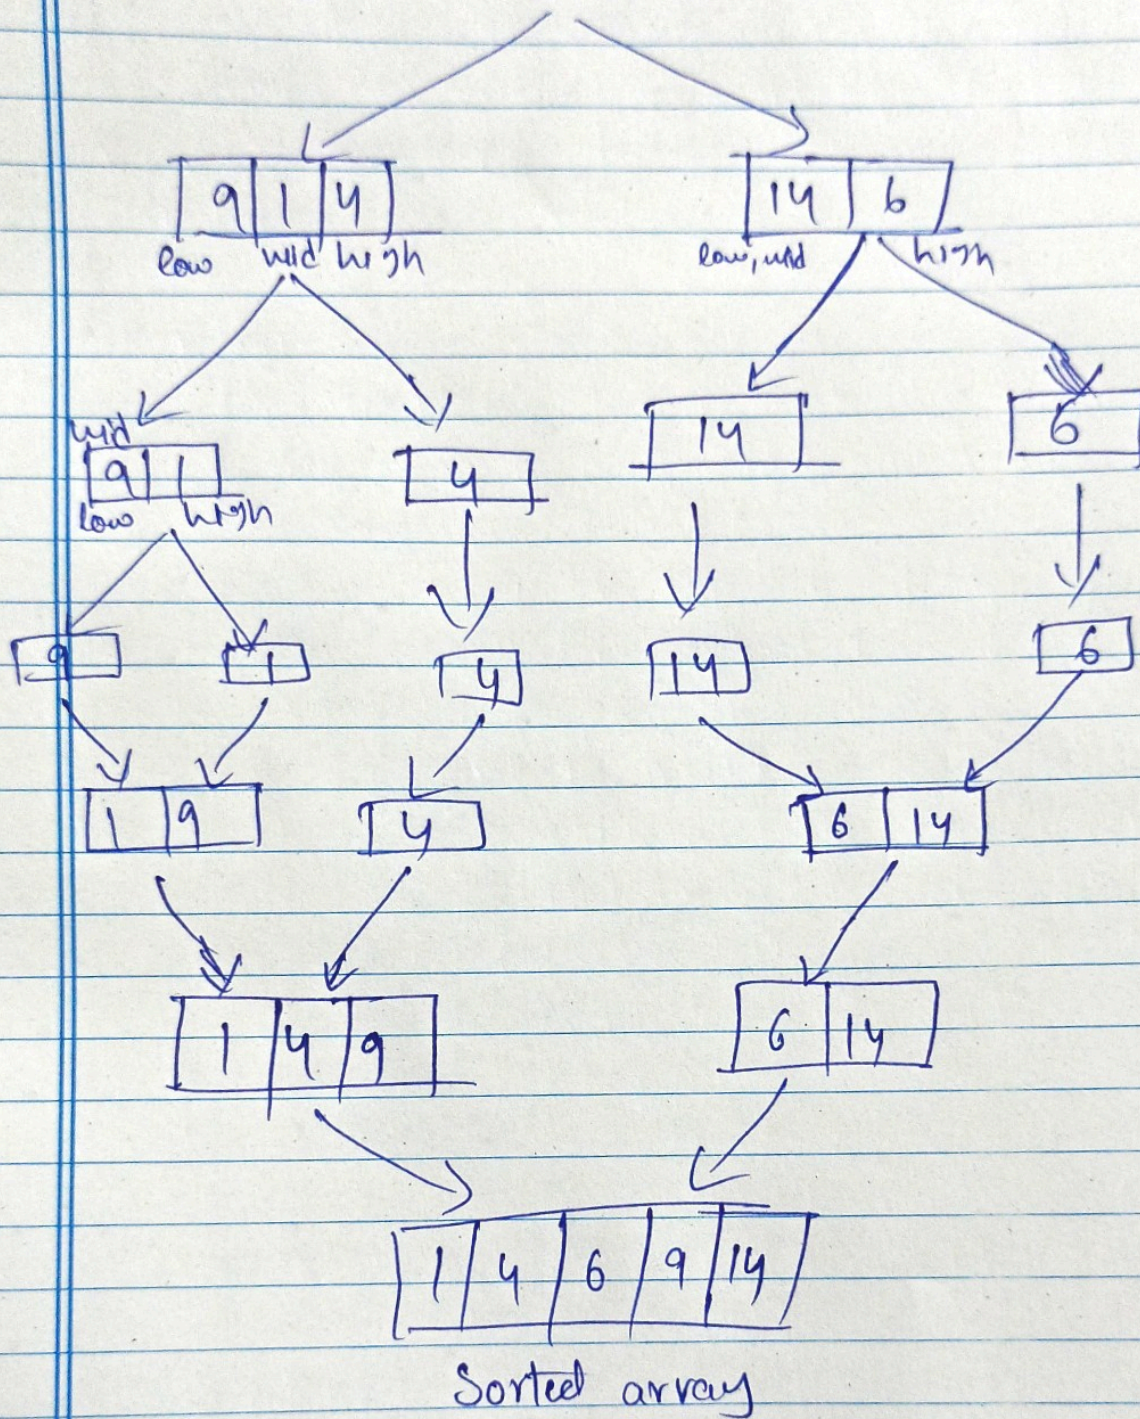 9 1 4 14 6
low mid high low, mid high
mid
9 1 4 14 6
low high
9 1 4 14 6
1 9 4 6 14
1 4 9 6 14
1 4 6 9 14
Sorted array